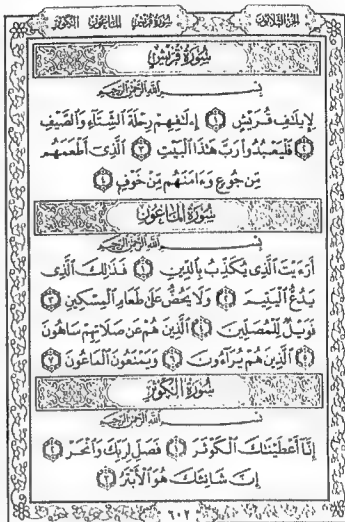 الجزء الثلاثون سورة قريش الماعون الكوثر
سُورَةُ قُرَيْشٍ
بِسْمِ اللَّهِ الرَّحْمَٰنِ الرَّحِيمِ
لِإِيلَٰفِ قُرَيْشٍ ١ إِۦلَٰفِهِمْ رِحْلَةَ الشِّتَآءِ وَالصَّيْفِ
٢ فَلْيَعْبُدُوا۟ رَبَّ هَٰذَا الْبَيْتِ ٣ الَّذِىٓ أَطْعَمَهُم
مِّن جُوعٍ وَءَامَنَهُم مِّنْ خَوْفٍۭ ٤
سُورَةُ الْمَاعُونِ
بِسْمِ اللَّهِ الرَّحْمَٰنِ الرَّحِيمِ
أَرَءَيْتَ الَّذِى يُكَذِّبُ بِالدِّينِ ١ فَذَٰلِكَ الَّذِى
يَدُعُّ الْيَتِيمَ ٢ وَلَا يَحُضُّ عَلَىٰ طَعَامِ الْمِسْكِينِ ٣
فَوَيْلٌ لِّلْمُصَلِّينَ ٤ الَّذِينَ هُمْ عَن صَلَاتِهِمْ سَاهُونَ
٥ الَّذِينَ هُمْ يُرَآءُونَ ٦ وَيَمْنَعُونَ الْمَاعُونَ ٧
سُورَةُ الْكَوْثَرِ
بِسْمِ اللَّهِ الرَّحْمَٰنِ الرَّحِيمِ
إِنَّآ أَعْطَيْنَٰكَ الْكَوْثَرَ ١ فَصَلِّ لِرَبِّكَ وَانْحَرْ ٢
إِنَّ شَانِئَكَ هُوَ الْأَبْتَرُ ٣
٦٠٢